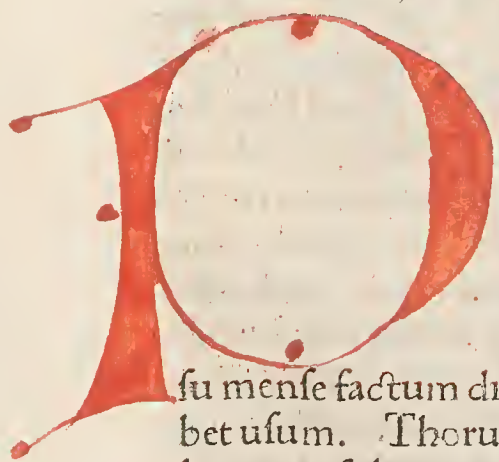 P
ſu menſe factum
bet uſum. Thoru